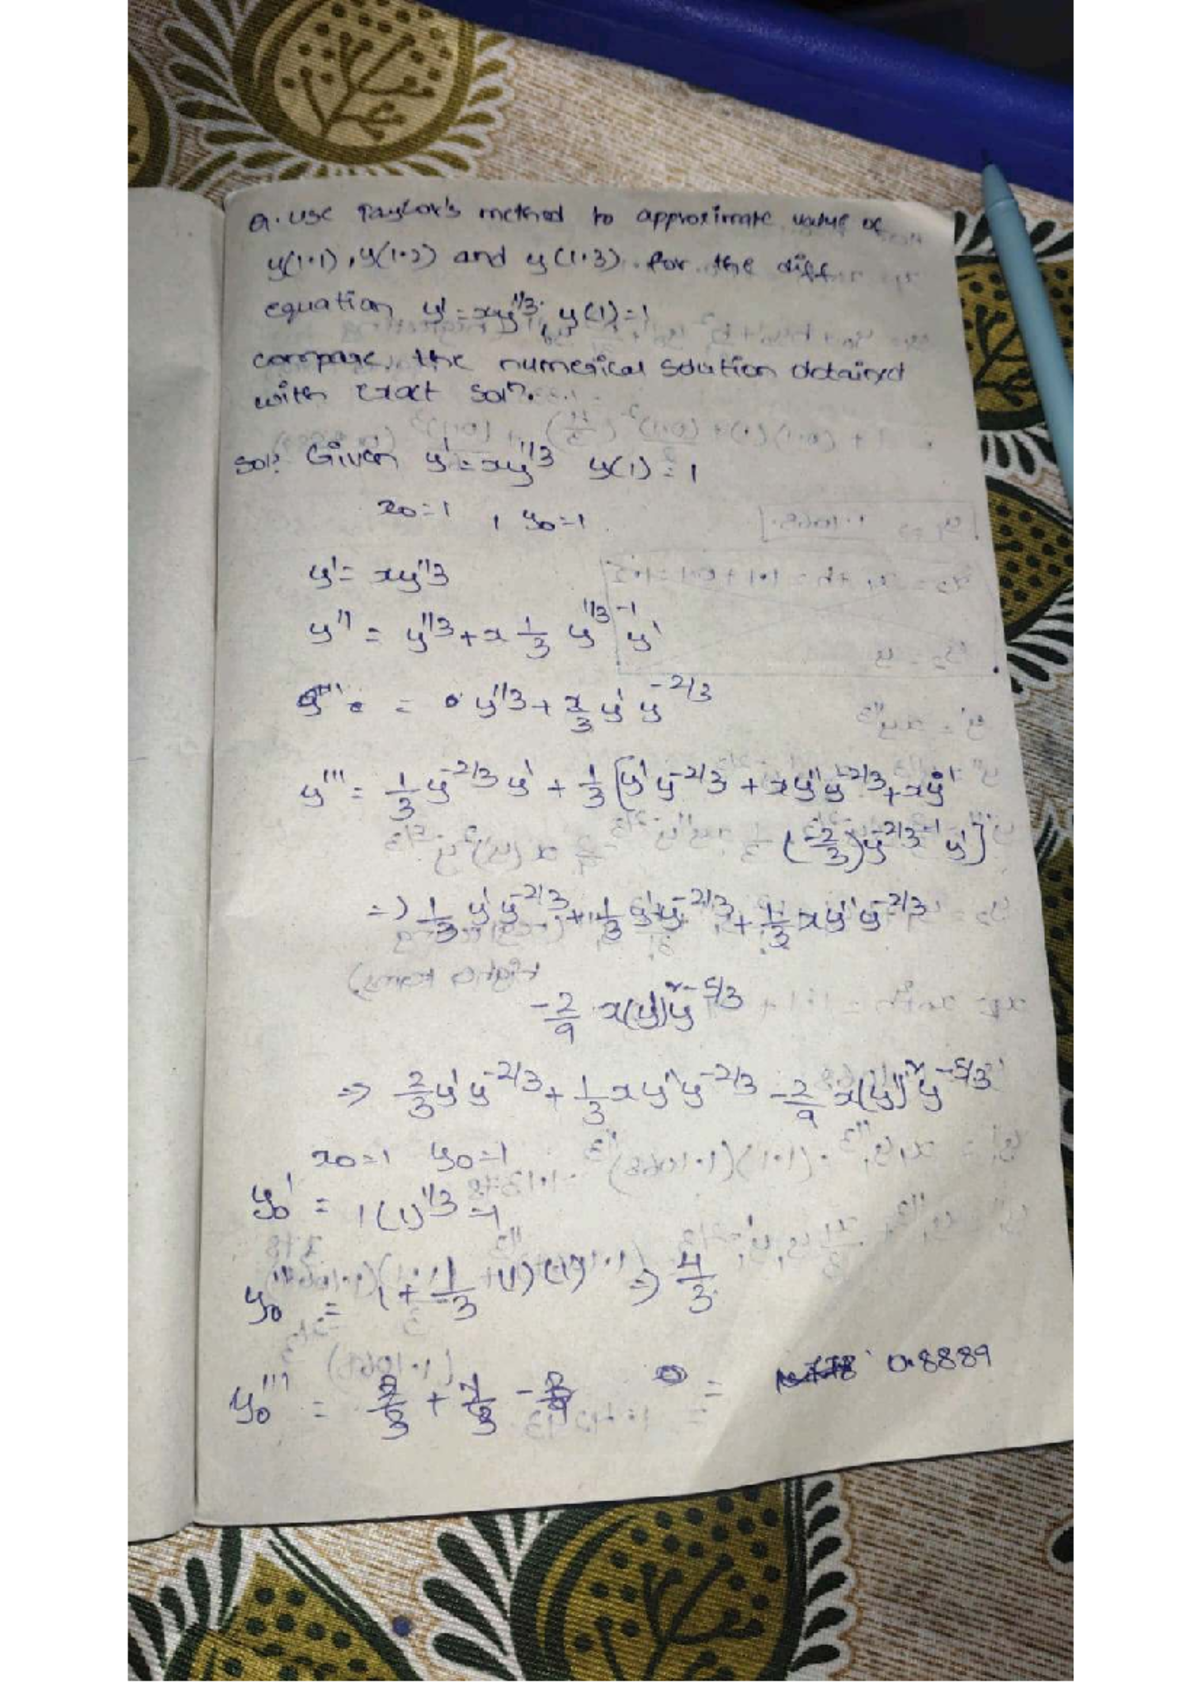 Q. Use Taylor's method to approximate value of
y(1.1), y(1.2) and y(1.3) for the diff
equation y' = xy^1/3, y(1)=1
compare, the numerical solution obtained
with exact solⁿ.
Solⁿ Given y' = xy^1/3 y(1) = 1
x0=1, y0=1
y' = xy^1/3
y'' = y^1/3 + x 1/3 y^1/3-1 y'
= y^1/3 + x/3 y' y^-2/3
y''' = 1/3 y^-2/3 y' + 1/3 [y' y^-2/3 + xy'' y^-2/3 + xy'
(-2/3) y^-2/3-1 y']
=> 1/3 y' y^-2/3 + 1/3 y' y^-2/3 + 1/3 xy'' y^-2/3
-2/9 x(y')² y^-5/3
=> 2/3 y' y^-2/3 + 1/3 xy'' y^-2/3 -2/9 x(y')² y^-5/3
x0=1 y0=1
y0' = 1(1)^1/3 = 1
y0'' = 1 + 1/3 (1)(1) => 4/3
y0''' = = 0.8889